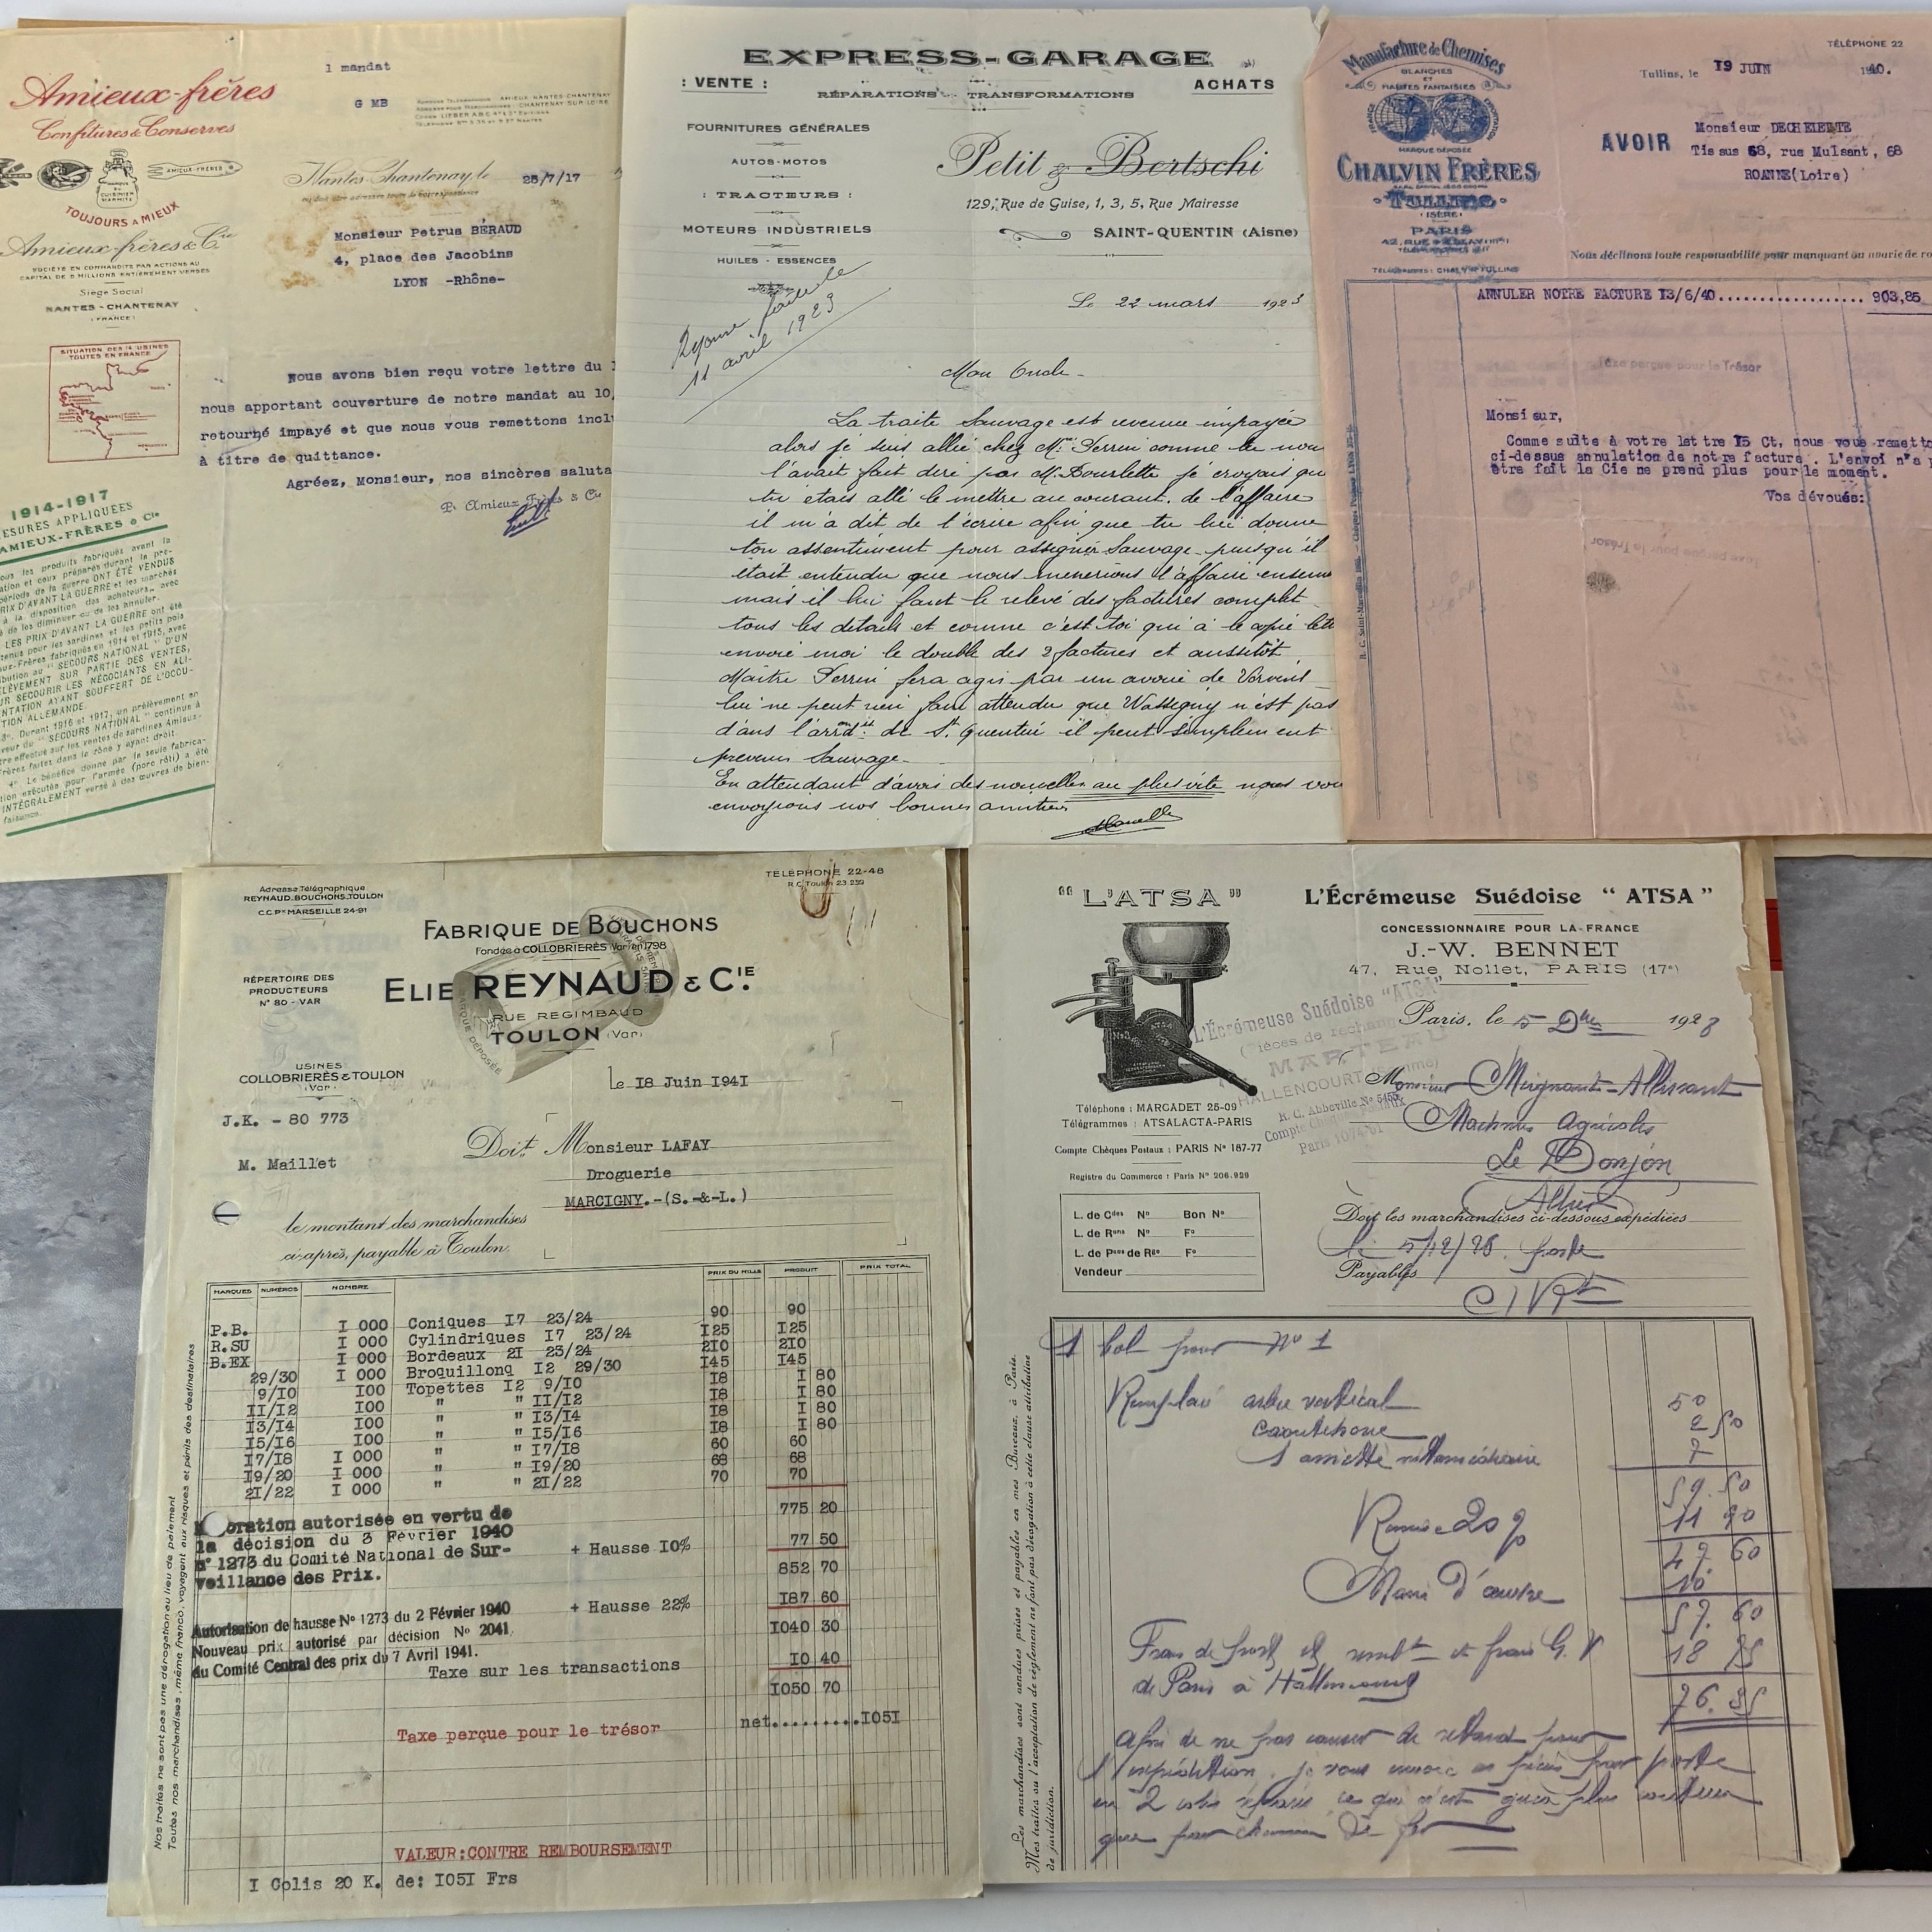 Amieux-frères
Confitures & Conserves
AMIEUX-FRÈRES
TOUJOURS A MIEUX
Amieux-frères & Cie
SOCIÉTÉ EN COMMANDITE PAR ACTIONS AU
CAPITAL DE 9 MILLIONS ENTIÈREMENT VERSÉS
Siège Social
NANTES - CHANTENAY
(FRANCE)
SITUATION DES 14 USINES
TOUTES EN FRANCE
1 mandat
G MB
Nantes-Chantenay, le 25/7/17
Monsieur Petrus BÉRAUD
4, place des Jacobins
LYON -Rhône-
Nous avons bien reçu votre lettre du 1
nous apportant couverture de notre mandat au 10,
retourné impayé et que nous vous remettons incl
à titre de quittance.
Agréez, Monsieur, nos sincères saluta
P. Amieux-Frères & Cie
1914-1917
ESURES APPLIQUÉES
AMIEUX-FRÈRES & Cie
ous les produits fabriqués avant la
ation et ceux préparés durant la pre-
période de la guerre ONT ÉTÉ VENDUS
RIX D'AVANT LA GUERRE et les marchés
à la disposition des acheteurs, avec
é de les diminuer ou de les annuler.
LES PRIX D'AVANT LA GUERRE ont été
tenus pour les sardines et les petits pois
ux-Frères fabriqués en 1914 et 1915, avec
bution au "SECOURS NATIONAL" D'UN
LÈVEMENT SUR PARTIE DES VENTES,
UR SECOURIR LES NÉGOCIANTS EN ALI-
NTATION AYANT SOUFFERT DE L'OCCU-
TION ALLEMANDE.
3° Durant 1916 et 1917, un prélèvement en
veur du "SECOURS NATIONAL" continue à
re effectué sur les ventes de sardines Amieux-
rères faites dans la zône y ayant droit.
4° Le bénéfice donné par la seule fabrica-
tion exécutée pour l'armée (porc rôti) a été
INTÉGRALEMENT versé à des œuvres de bien-
faisance.
EXPRESS-GARAGE
: VENTE : ACHATS
RÉPARATIONS - TRANSFORMATIONS
FOURNITURES GÉNÉRALES
AUTOS-MOTOS
: TRACTEURS :
MOTEURS INDUSTRIELS
HUILES - ESSENCES
Petit & Bertschi
129, Rue de Guise, 1, 3, 5, Rue Mairesse
SAINT-QUENTIN (Aisne)
Le 22 mars 1923
11 avril 1923
Mon Oncle -
La traite Sauvage est revenue impayée
alors je suis allée chez Me Perrin comme tu nou
l'avait fait dire par M. Bourlette je croyais qu
tu étais allé le mettre au courant de l'affaire
il m'a dit de t'écrire afin que tu lui donne
ton assentiment pour assigner Sauvage puisqu'il
était entendu que nous menerions l'affaire ensem
mais il lui faut le relevé des factures complet
tous les détails et comme c'est toi qui à le copie lett
envoie moi le double des 2 factures et aussitôt
Maître Perrin fera agir par un avoué de Vervins
lui ne peut rien faire attendu que Wassigny n'est pas
dans l'arrdt de St Quentin il peut simplement
prevenir Sauvage -
En attendant d'avoir des nouvelles au plus vite nous vou
envoyons nos bonnes amitiés
TÉLÉPHONE 22
Manufacture de Chemises
BLANCHES
ET
HAUTES FANTAISIES
MARQUE DÉPOSÉE
CHALVIN FRÈRES
TULLINS
(ISÈRE)
PARIS
TÉLÉGRAMMES : CHALVIN TULLINS
Tullins, le 19 JUIN 1940.
AVOIR
Monsieur DECHELETTE
Tissus 68, rue Mulsant, 68
ROANNE(Loire)
Nous déclinons toute responsabilité pour manquant ou avarie de ro
ANNULER NOTRE FACTURE 13/6/40.................. 903,85
Taxe perçue pour le Trésor
Monsieur,
Comme suite à votre lettre 15 Ct, nous vous remetto
ci-dessus annulation de notre facture. L'envoi n'a p
être fait la Cie ne prend plus pour le moment.
Vos dévoués:
Taxe perçue pour le Trésor
Adresse Télégraphique
REYNAUD.BOUCHONS.TOULON
C.C.Px MARSEILLE 24-91
TÉLÉPHONE 22-48
R.C. Toulon 23.239
FABRIQUE DE BOUCHONS
Fondée à COLLOBRIÈRES (Var) en 1798
ELIE REYNAUD & CIE.
RUE REGIMBAUD
TOULON (Var)
MARQUE DÉPOSÉE
RÉPERTOIRE DES
PRODUCTEURS
N° 80 - VAR
USINES
COLLOBRIÈRES & TOULON
(Var)
le 18 Juin 1941
J.K. - 80 773
M. Maillet
Doit Monsieur LAFAY
Droguerie
MARCIGNY.-(S.-&-L.)
le montant des marchandises
ci-après, payable à Toulon
MARQUES NUMÉROS NOMBRE PRIX DU MILLE PRODUIT PRIX TOTAL
P.B. I 000 Coniques I7 23/24 90 90
R.SU I 000 Cylindriques I7 23/24 I25 I25
B.EX I 000 Bordeaux 2I 23/24 2I0 2I0
29/30 I 000 Broquillonq I2 29/30 I45 I45
9/I0 I00 Topettes I2 9/I0 I8 I 80
II/I2 I00 " " II/I2 I8 I 80
I3/I4 I00 " " I3/I4 I8 I 80
I5/I6 I00 " " I5/I6 I8 I 80
I7/I8 I 000 " " I7/I8 60 60
I9/20 I 000 " " I9/20 68 68
2I/22 I 000 " " 2I/22 70 70
775 20
oration autorisée en vertu de
la décision du 3 Février 1940
n° 1273 du Comité National de Sur-
veillance des Prix.
+ Hausse I0% 77 50
852 70
+ Hausse 22% I87 60
I040 30
Autorisation de hausse N° 1273 du 2 Février 1940
Nouveau prix autorisé par décision N° 2041
du Comité Central des prix du 7 Avril 1941.
Taxe sur les transactions I0 40
I050 70
net.........I05I
Taxe perçue pour le trésor
VALEUR:CONTRE REMBOURSEMENT
I Colis 20 K. de: I05I Frs
Nos traites ne sont pas une dérogation au lieu de paiement
Toutes nos marchandises, même franco, voyagent aux risques et périls des destinataires
"L'ATSA"
L'Écrémeuse Suédoise "ATSA"
CONCESSIONNAIRE POUR LA FRANCE
J.-W. BENNET
47, Rue Nollet, PARIS (17e)
L'Écrémeuse Suédoise "ATSA"
(Pièces de rechange)
MARTEAU
HALLENCOURT (Somme)
R. C. Abbeville N° 5455
Paris, le 5 Dbre 1928
Téléphone : MARCADET 25-09
Télégrammes : ATSALACTA-PARIS
Compte Chèques Postaux : PARIS N° 187-77
Registre du Commerce : Paris N° 206.929
Monsieur Mignant-Allissant
Machines agricoles
Le Donjon
Allier
L. de Cdes N° Bon N°
L. de Rons N° F°
L. de Pces de Rge F°
Vendeur
Doit les marchandises ci-dessous expédiées
le 5/12/28 poste
Payables
1 bol pour N° 1
Remplacé arbre vertical 50
caoutchouc 2 50
7
59.50
Remise 20 % 11 90
47.60
Main d'œuvre 10
57.60
Frais de port et rembt et frais G. V 18 75
de Paris à Hallencourt
76.35
Afin de ne pas causer de retard pour
l'expédition, je vous envoie ces pièces par poste
en 2 colis séparés, ce qui n'est guère plus couteux
que par chemin de fer
Les marchandises sont vendues prises et payables en mes Bureaux, à Paris.
Mes traites ou l'acceptation de règlement ne font pas dérogation à cette clause attributive
de juridiction.